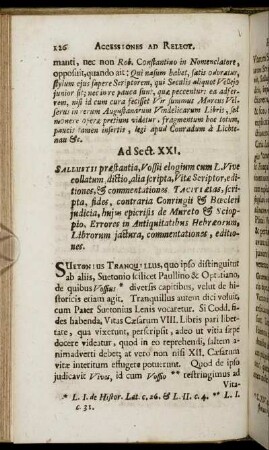 126 ACCESSIONES AD RELECT.
manti, nec non Rob. Constantino in Nomenclatore,
opposuit, quando ait: Qui nasum habet, satis odoratur,
stylum ejus sapere Scriptorem, qui Seculis aliquot Vellejo
junior sit; nec in re pauca sunt, quæ peccentur: ea ad-
ferrem, nisi id cum cura fecisset Vir summus Marcus Vel-
serus in rerum Augustanarum Vindelicarum Libris, sed
monere operæ pretium videtur, fragmentum hoc totum,
paucis tamen insertis, legi apud Conradum à Lichte-
nau &c.
Ad Sect. XXI.
SALLUSTII præstantia, Vossii elogium cum L. Vive
collatum, dictio, alia scripta, Vitæ Scriptor, edi-
tiones, & commentationes. TACITI ætas, scri-
pta, fides, contraria Conringii & Bœcleri
judicia, hujus epicrisis de Mureto & Sciop-
pio. Errores in Antiquitatibus Hebræorum,
Librorum jactura, commentationes, editio-
nes.
SUETONIUS TRANQUILLUS, quo ipso distinguitur
ab aliis, Suetonio scilicet Paullino & Optatiano,
de quibus Vossius * diversis capitibus, velut de hi-
storicis etiam agit. Tranquillus autem dici voluit,
cum Pater Suetonius Lenis vocaretur. Si Codd. fi-
des habenda, Vitas Cæsarum VIII. Libris pari liber-
tate, qua vixerunt, perscripsit, adeo ut vitia sæpe
docere videatur, quod in eo reprehendi, saltem
animadverti debet; at vero non nisi XII. Cæsarum
vitæ interitum effugere potuerunt. Quod de ipso
judicavit Vives, id cum Vossio ** restringimus ad
Vita-
* L. I. de Histor. Lat. c. 26. & L. II. c. 4. ** L. I.
c. 31.